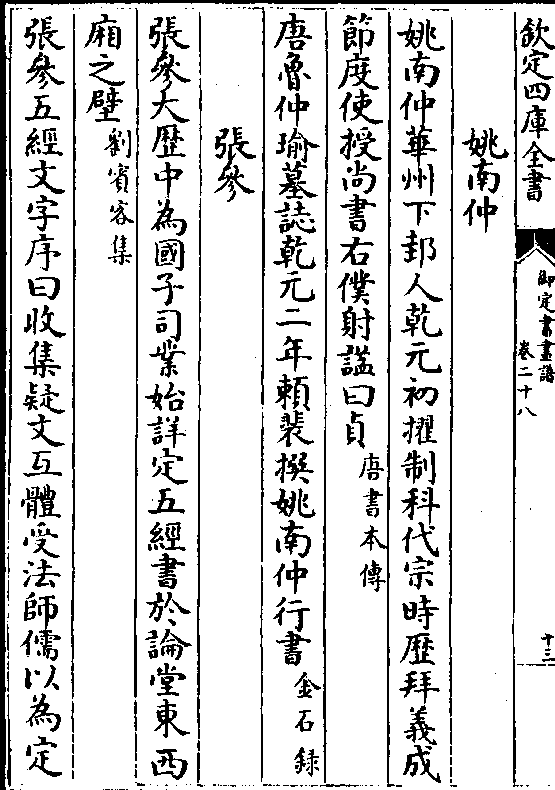 欽定四庫全書
御定書畫譜
卷二十八
十三
姚南仲
姚南仲華州下邽人乾元初擢制科代宗時歷拜義成
節度使授尚書右僕射諡曰貞唐書本傳
唐魯仲瑜墓誌乾元二年賴裴撰姚南仲行書金石録
張參
張參大歷中為國子司業始詳定五經書於論堂東西
廂之壁劉賓客集
張參五經文字序曰收集疑文互體受法師儒以為定